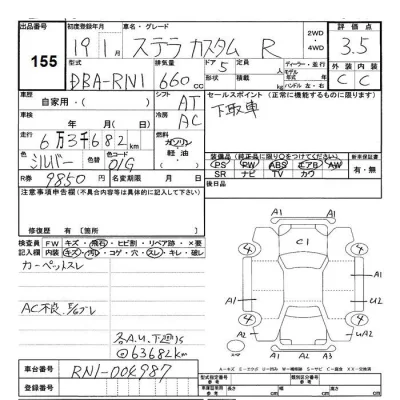 出品番号 初度登録年月 車名・グレード 2WD ・4WD 評価点
155 19年1月 ステラ カスタム R 3.5
型式 排気量 ドア 定員 ディーラー・並行 外装 内装
DBA-RN1 660cc 5 C C
車歴 シフト セールスポイント(正常に機能するものに限る)
自家用・( ) AT 下取車
車検 冷房
年 月 AC
走行 燃料
6万3千682km ガソリン
軽油
色 シルバー 色替 色コード 01G
装備品(純正品に限り○をつけてください。) 新車保証書
PS PW ABS エアB AW
SR ナビ TV カワ 有・無
R券 9850円 名変期限 月 日 後日品
注意事項申告欄(不具合内容は具体的に記入して下さい)
修復歴 有〔箇所 〕
検査員記入欄 FW キズ・飛石・ヒビ割・リペア跡・×要
内装 キズ・汚レ・コゲ・穴・スレ・キレ・破レ
カーペットスレ
AC不良
63682km
車台番号 RN1-004987
登録番号
A1 A1
4 C1 4
A1 A1 U2
4 4
A2 UA2
A2 A1 A3